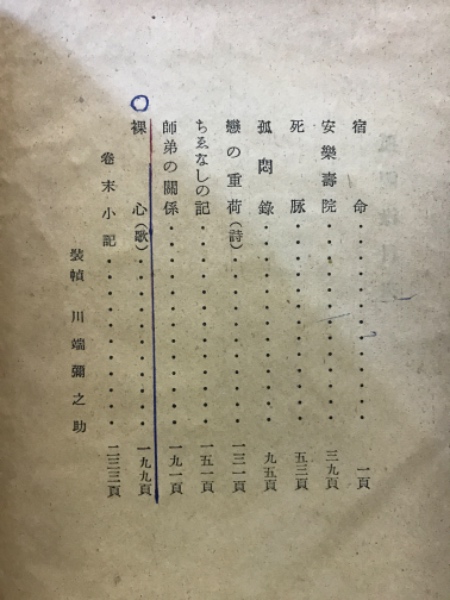 宿命・・・・・・・・・・・一頁
安樂壽院・・・・・・・・・・・三九頁
死脉・・・・・・・・・・・五三頁
孤悶錄・・・・・・・・・・・九五頁
戀の重荷(詩)・・・・・・・・・一三一頁
ちゑなしの記・・・・・・・・・・一五一頁
師弟の關係・・・・・・・・・・一九一頁
裸心(歌)・・・・・・・・・一九九頁
卷末小記・・・・・・・・・・二三三頁
裝幀 川端彌之助